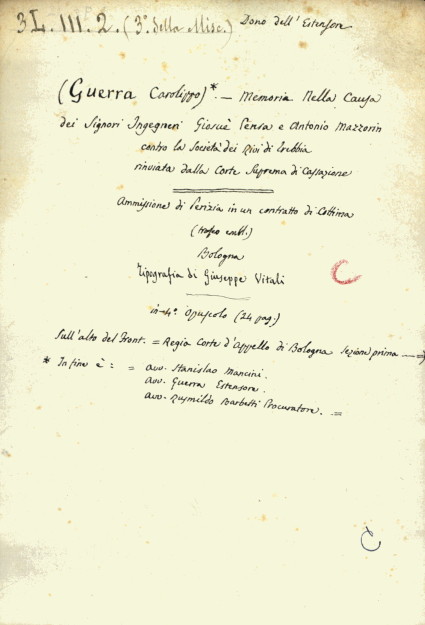 3L.III.2. (3ª della Misc.) Dono dell'Estensore
(Guerra Carolippo)*. — Memoria Nella Causa
dei Signori Ingegneri Giosuè Pensa e Antonio Mazzorin
contro la Società dei
rinviata dalla Corte Suprema di Cassazione
Ammissione di Perizia in un contratto di Cottimo
Bologna
Tipografia di Giuseppe Vitali
in-4º Opuscolo (24 pag.)
Sull'alto del Front. = Regia Corte d'Appello di Bologna sezione prima
* In fine è: = avv. Stanislao Mancini.
avv. Guerra Estensore.
avv. Barbetti Procuratore. =